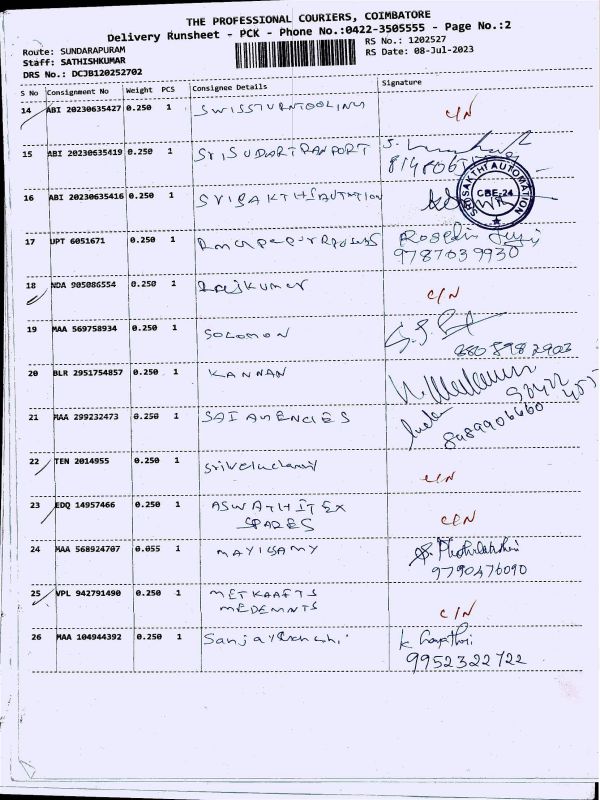 THE PROFESSIONAL COURIERS, COIMBATORE
Delivery Runsheet - PCK - Phone No.:0422-3505555 - Page No.:2
Route: SUNDARAPURAM
RS No.: 1202527
Staff: SATHISHKUMAR
RS Date: 08-Jul-2023
DRS No.: DCJB120252702
S No Consignment No Weight PCS Consignee Details Signature
14 ABI 20230635427 0.250 1 C/N
15 ABI 20230635419 0.250 1 SRI SUDAR TRANPORT
16 ABI 20230635416 0.250 1
SRI SAKTHI AUTOMATION CBE-24
17 UPT 6051671 0.250 1
9787039930
18 NDA 905086554 0.250 1 Rajkumar C/N
19 MAA 569758934 0.250 1 SOLOMON
20 BLR 2951754857 0.250 1 KANNAN
21 MAA 299232473 0.250 1 SAI AGENCIES
8989906660
22 TEN 2014955 0.250 1 C/N
23 EDQ 14957466 0.250 1 ASWATHI TEX C/N
SPARES
24 MAA 568924707 0.055 1 MAYILSAMY
9790476090
25 VPL 942791490 0.250 1 C/N
26 MAA 104944392 0.250 1 K Gayathri
9952322722